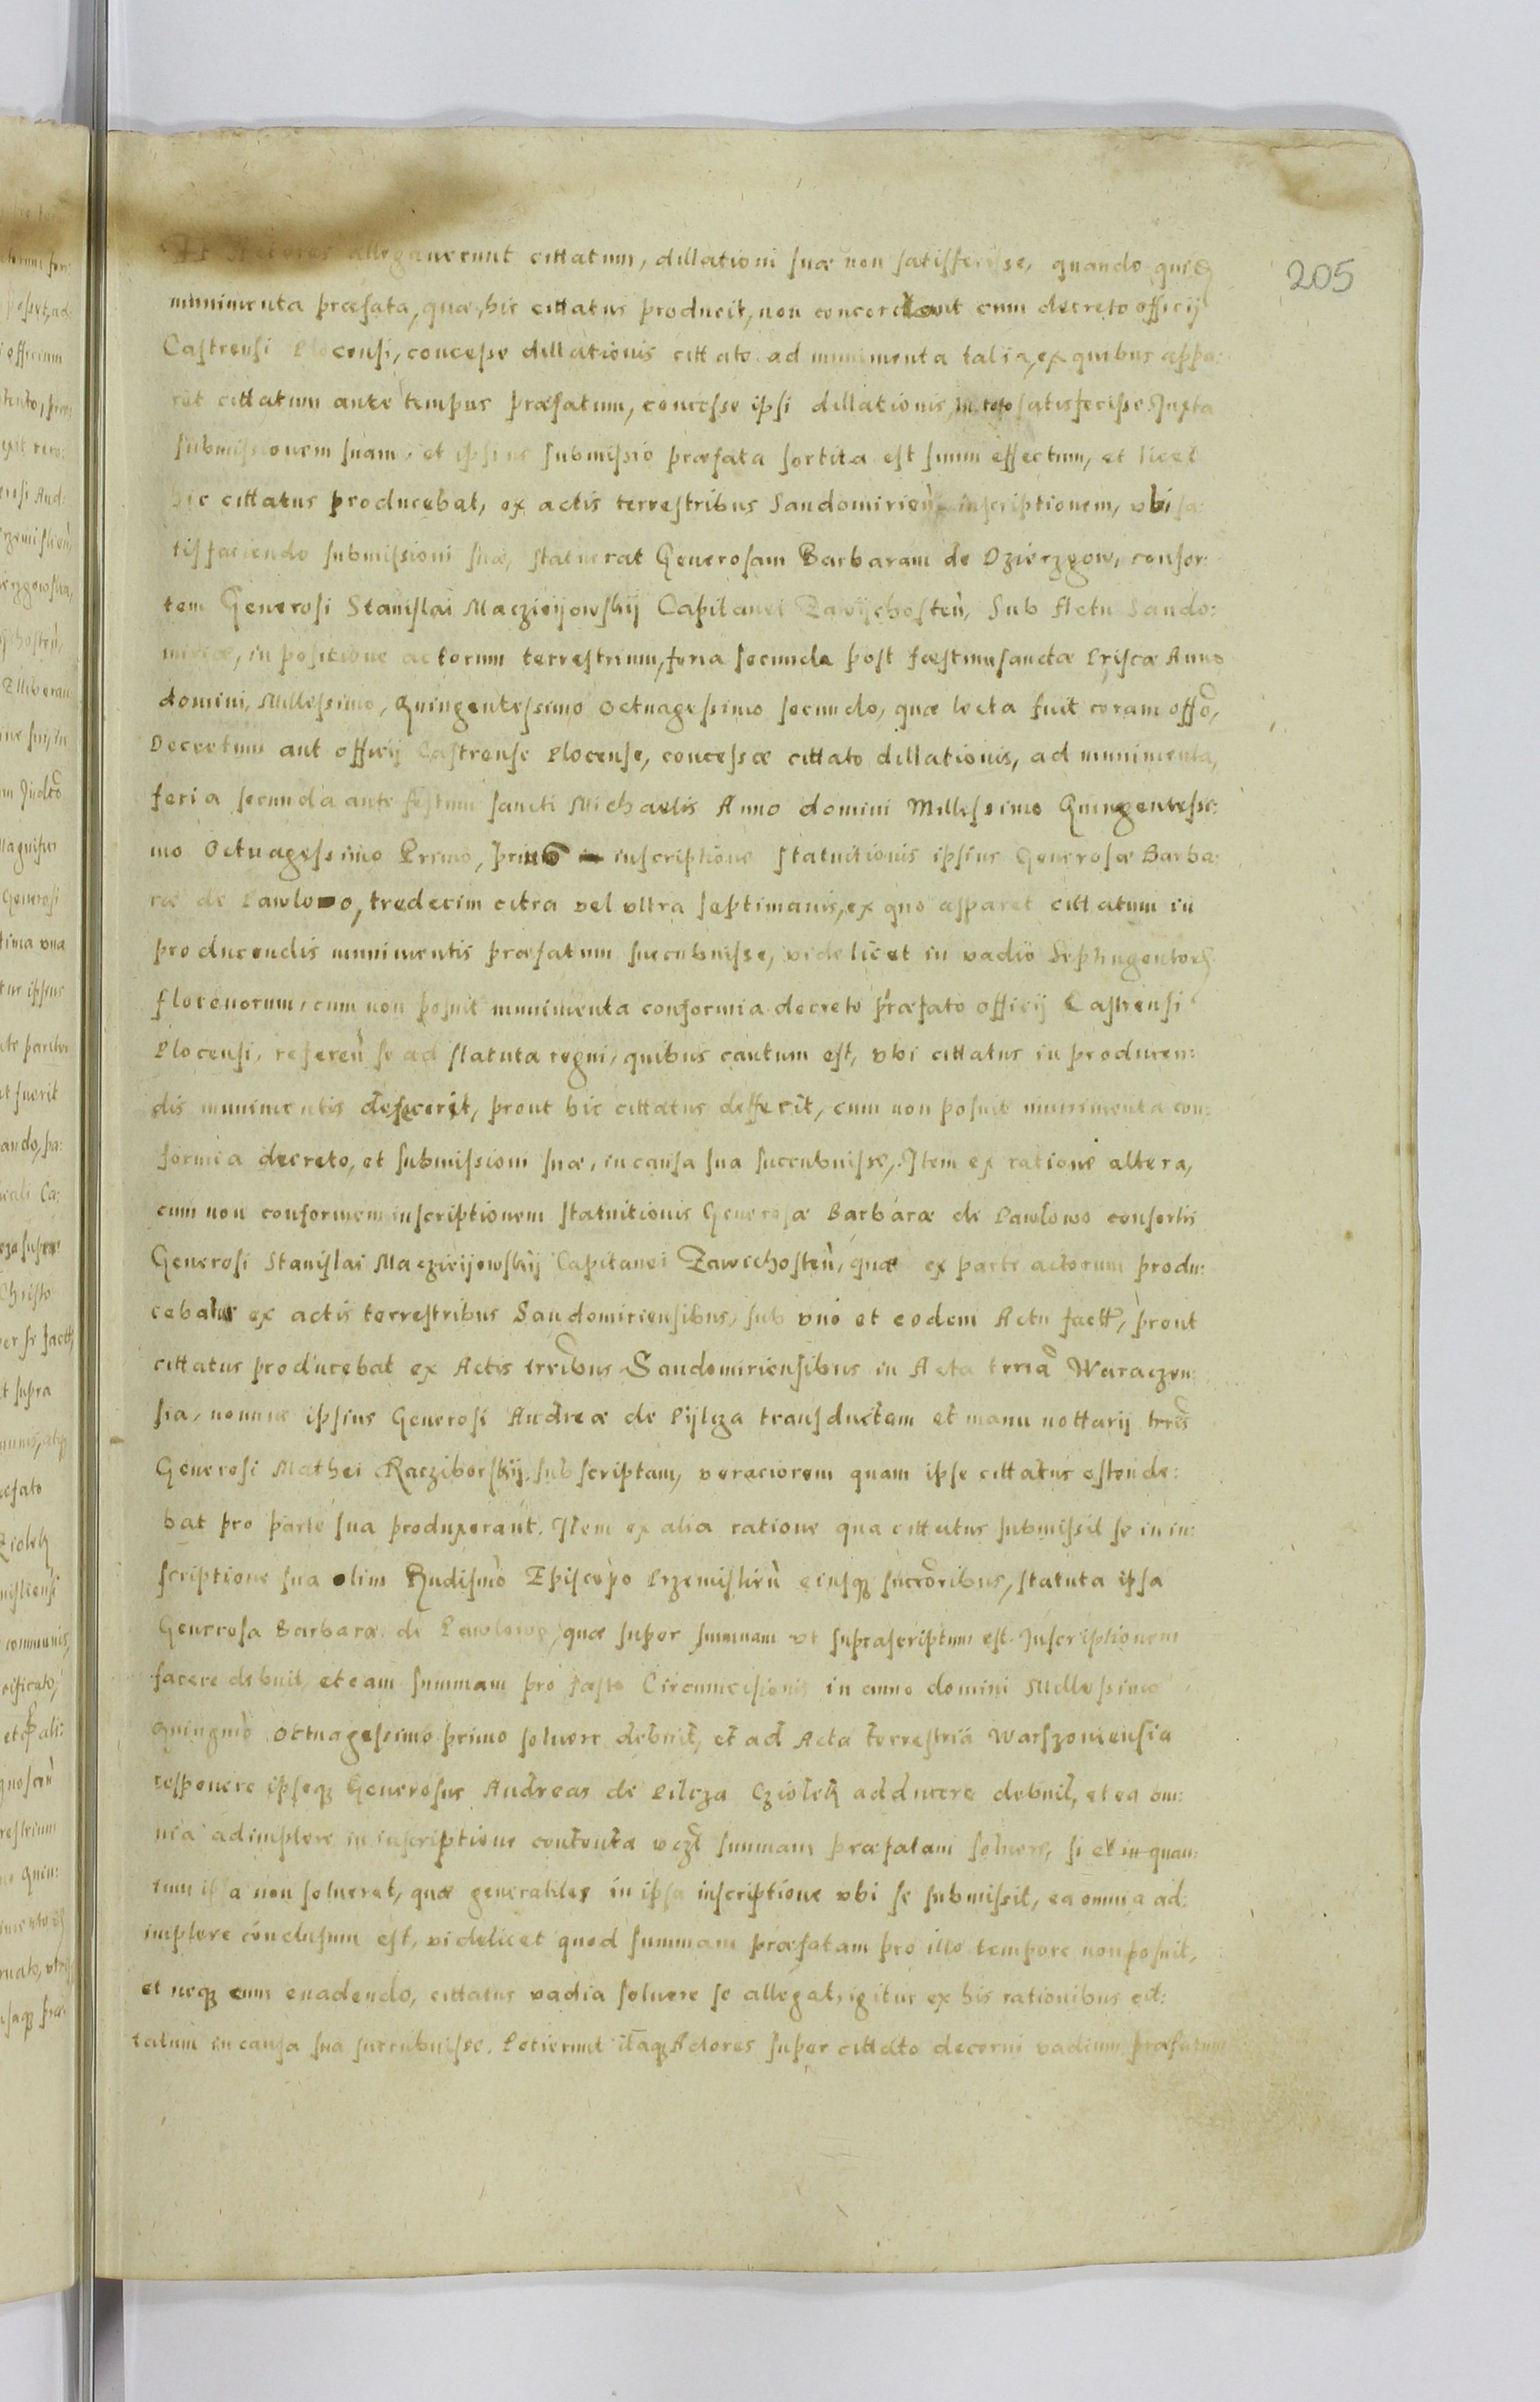 205
Et Actores alleganerunt cittatum, dillationi suæ non satisfecisse, quando quidẽ
munimenta præfata, quæ, hic cittatus producit, non concordant cum decreto officij
Castrensi Plocensi, concessæ dillationis cittato ad munimenta talia, ex quibus appa:
ret cittatum ante tempus præfatum, concesse ipsi dillationis, in toto satisfecisse Juxta
submissionem suam, et ipsius submissio præfata sortita est suum effectum, et licet
hic cittatus producebat, ex actis terrestribus Sandomirieñ inscriptionem, vbi sa:
tisfaciendo submissioni suæ, statuerat Generosam Barbaram de Dzierzgow, consor:
tem Generosi Stanislai Maczieijowskij Capitanei Zawijchosteñ, Sub Actu Sando:
miriæ, in positione actorum terrestrium, feria secunda post fæstum sanctæ Priscæ Anno
domini, Millessimo, Quingentessimo Octuagessimo secundo, quæ lecta fuit coram offo,
Decretum aut officij Castrense Plocense, concessæ cittato dillationis, ad munimenta,
feria secunda ante festum sancti Michaelis Anno domini Millessimo Quingentessi:
mo Octuagessimo Primo, inscriptione statuitionis ipsius Generosæ Barba:
ræ de Pawlowo, tredecim citra vel vltra septimanis, ex quo apparet cittatum in
producendis munimentis præfatum succubuisse, videlicet in vadio Septingentorũ
florenorum, cum non posuit munimenta conformia decreto præfato officij Castrensi
Plocensi, refereñ se ad statuta regni, quibus cautum est, vbi cittatus in producen:
dis munimentis defecerit, prout hic cittatus deffecit, cum non posuit munimenta con:
formia decreto, et submissioni suæ, in causa sua succubuisse, Item ex ratione altera,
cum non conformem inscriptionem statuitionis Generosæ Barbaræ de Pawlowo consortis
Generosi Stanislai Maczieijowskij Capitanei Zawichosteñ, quæ ex parte actorum produ:
cebatur ex actis terrestribus Sandomiriensibus, sub vno et eodem Actu fact, prout
cittatus producebat ex Actis trribus Sandomiriensibus in Acta trria Waraczen:
sia, nomine ipsius Generosi Andreæ de Pijlcza transductam et manu nottarij trris
Generosi Mathei Racziborskij, subscriptam, veraciorem quam ipse cittatus ostende:
bat pro parte sua produxerant. Item ex alia ratione qua cittatus submissit se in in:
scriptione sua olim Rndismo Episcopo Przemislieñ eiusq succoribus, statuta ipsa
Generosa Barbaræ de Pawlowo, quæ super summam vt supra scriptum est. Inscriptionem
facere debuit, et eam summam pro fæsto Circumcisionis in anno domini Millessimo
Quingmo Octuagessimo primo soluere debuit, et ad Acta terrestria Warszouiensia
repponere ipseq Generosus Andreas de Pilcza Cziolek adducere debuit, et ea om:
nia adimplere in inscriptione contenta vczt summam præfatam soluere, si et in quan:
tum ipsa non solueret, quæ generalites in ipsa inscriptione vbi se submissit, ea omnia ad:
implere conclusum est, videlicet quod summam præfatam pro illo tempore non posuit,
et neq eum euadendo, cittatus vadia soluere se allegat, igitur ex his rationibus cit:
tatum in causa sua succubuisse. Petierunt itaq Actores super cittato decerni vadium præfatum